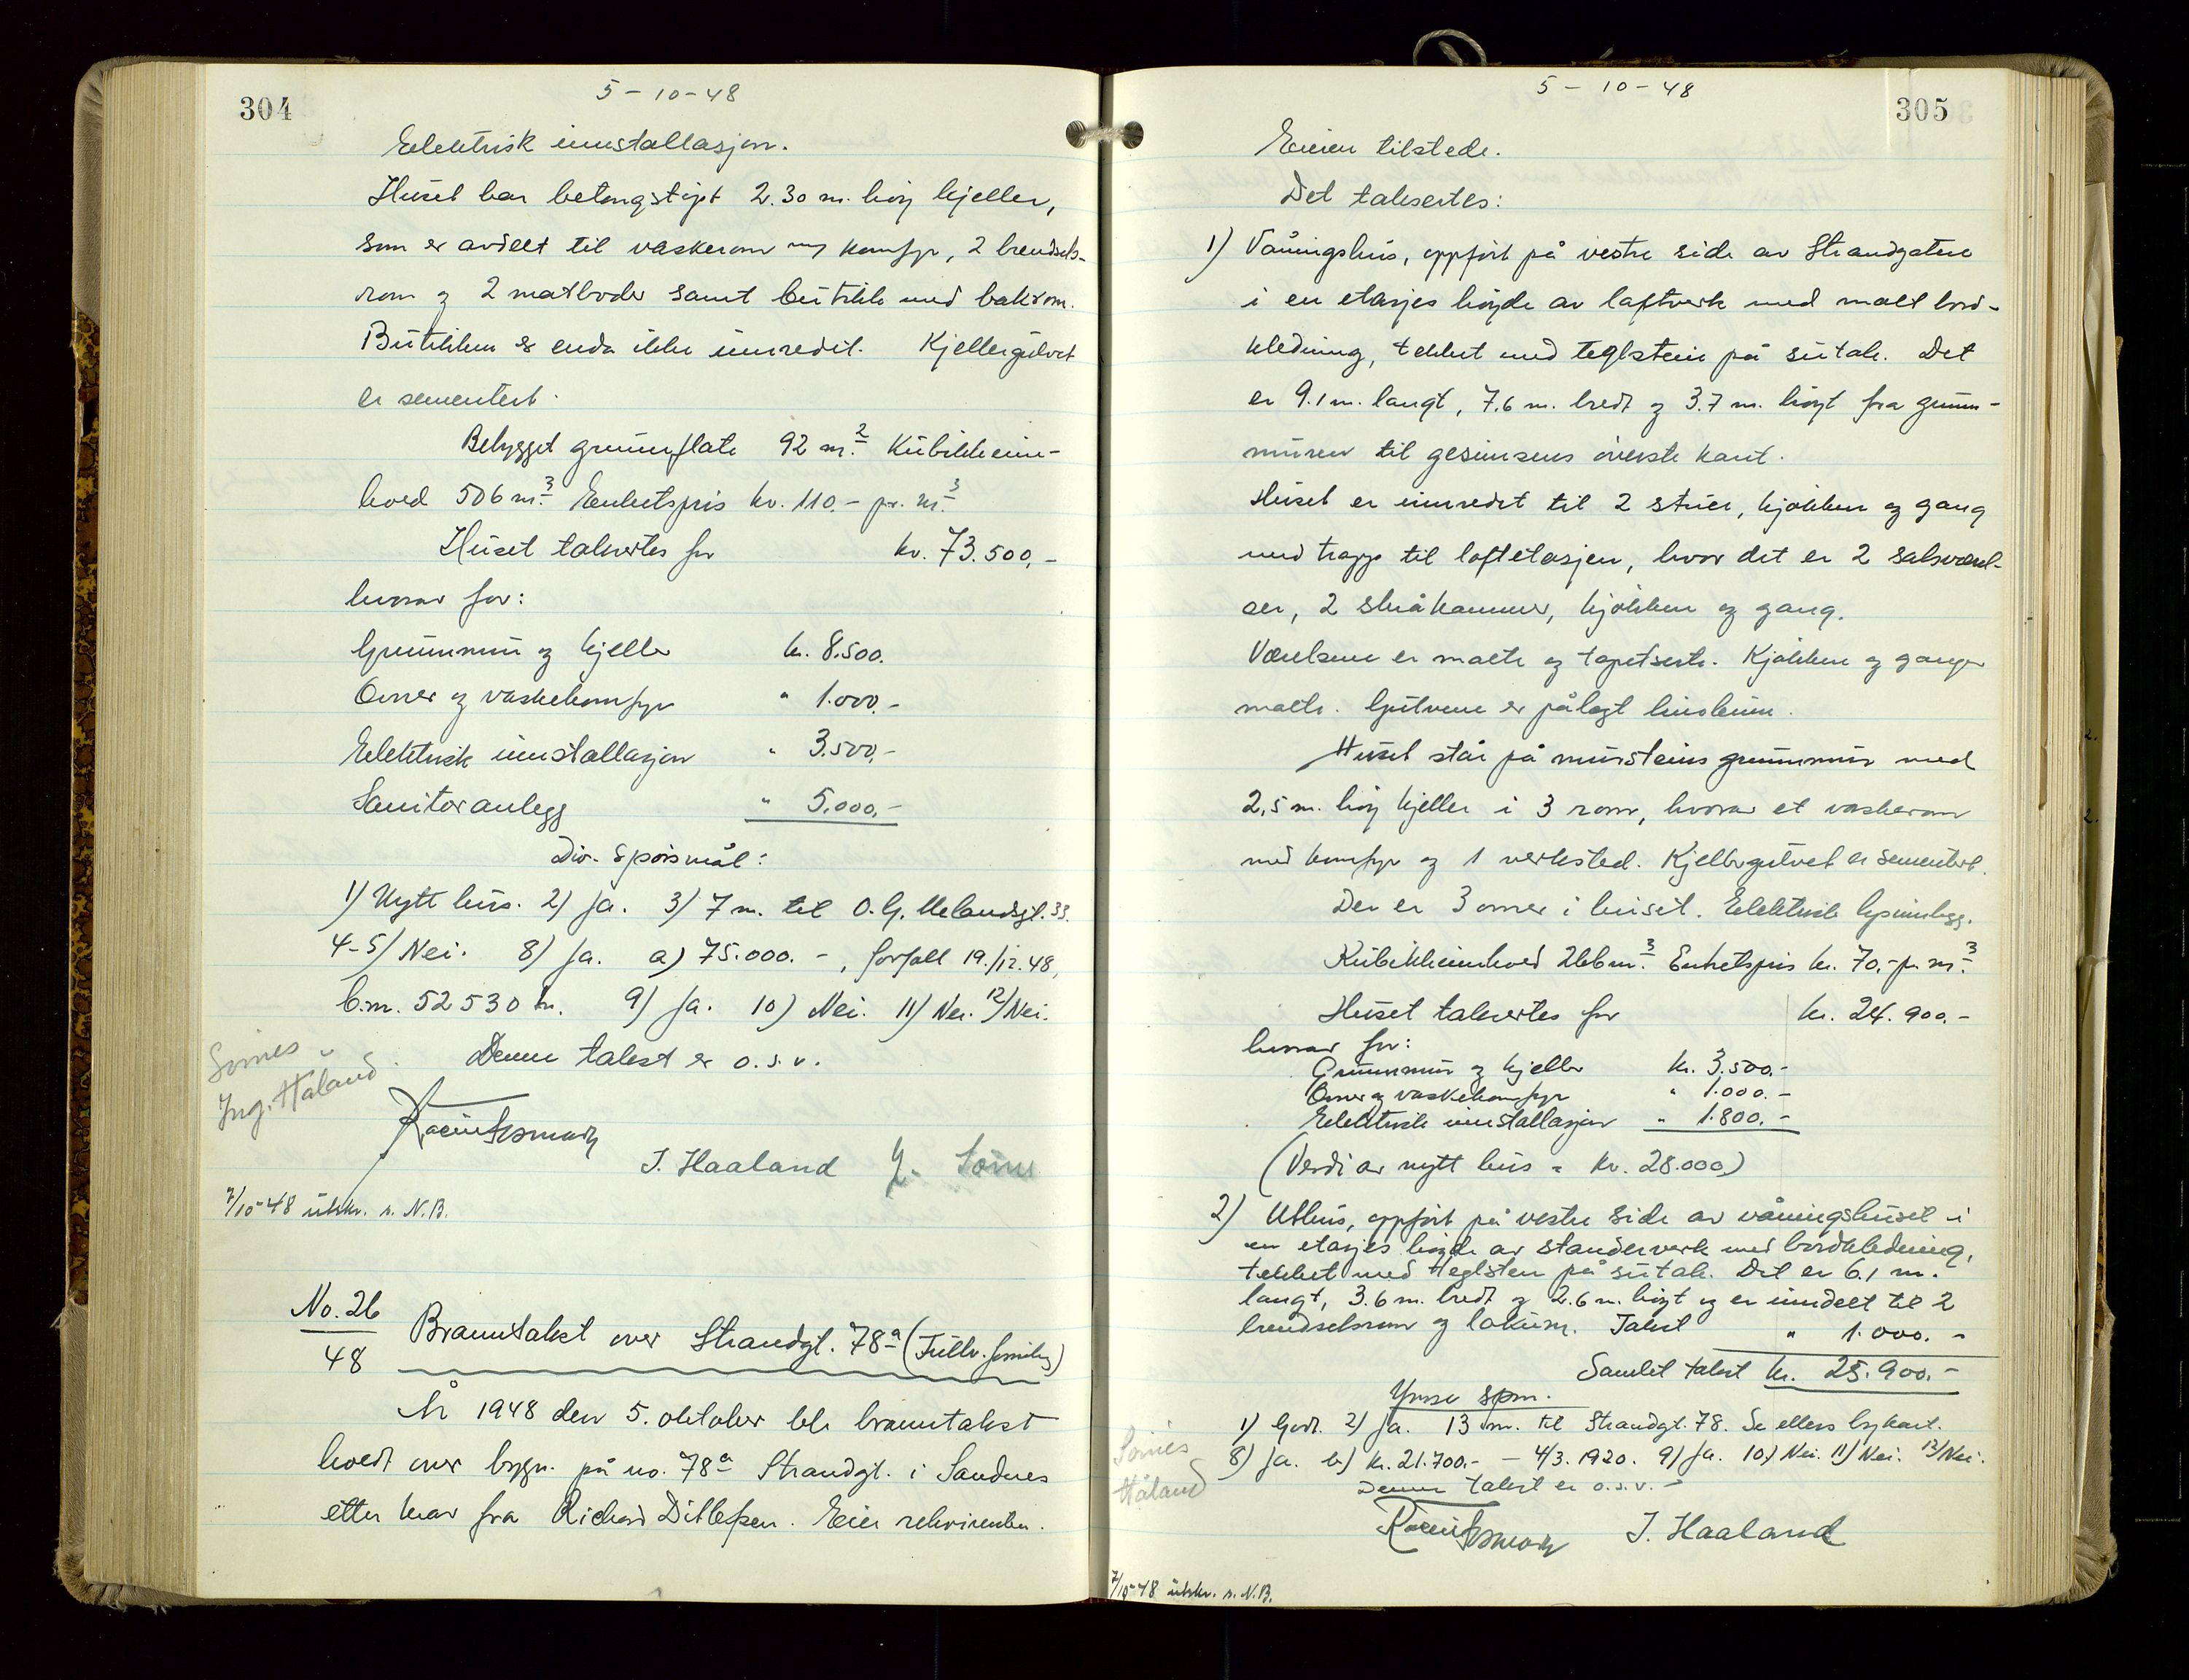 304
5-10-48
Elektrisk innstallasjon.
Huset har betongstöpt 2.30 m. höy kjeller,
som er avdelt til vaskerom m/ komfyr, 2 brendsels-
rom og 2 matboder samt butikk med bakrom.
Butikken er enda ikke innredit. Kjellergulvet
er sementert.
Bebygget grunnflate 92 m.² Kubikkinn-
hold 506 m.³ Enhetspris kr. 110.- pr. m.³
Huset takseres for kr. 73.500,-
hvorav for:
Grunnmur og kjeller kr. 8.500.
Ovner og vaskekomfyr " 1.000.-
Elektrisk innstallasjon " 3.500,-
Sanitæranlegg " 5.000,-
Div. spörsmål:
1) Nytt hus. 2) Ja. 3) 7 m. til O. G. Melandsgt. 33.
4-5) Nei. 8) Ja. a) 75.000.-, forfall 19./12.48,
b.m. 52530 kr. 9) Ja. 10) Nei. 11) Nei. 12) Nei.
Denne takst er o.s.v.
Sömes
Ing. Håland
J. Haaland
7/10-48 utskr. s. N.B.
No. 26
48
Branntakst over Strandgt. 78ª (Fullv. forsikrg)
År 1948 den 5. oktober ble branntakst
holdt over bygn. på no. 78ª Strandgt. i Sandnes
etter krav fra Richard Ditlefsen. Eier rekvirenten.
5-10-48
305
Eieren tilstede.
Det takseres:
1) Våningshus, oppfört på vestre side av Strandgaten
i en etasjes höyde av laftverk med malt bord-
kledning, tekket med teglstein på sutak. Det
er 9.1 m. langt, 7.6 m. bredt og 3.7 m. höyt fra grunn-
muren til gesimsens överste kant.
Huset er innredet til 2 stuer, kjökken og gang
med trapp til loftetasjen, hvor det er 2 salsværel-
ser, 2 skråkammer, kjökken og gang.
Værelsene er malte og tapetserte. Kjökken og ganger
malte. Gulvene er pålagt linoleum.
Huset står på mursteins grunnmur med
2,5 m. höy kjeller i 3 rom, hvorav et vaskerom
med komfyr og 1 verksted. Kjellergulvet er sementert.
Der er 3 ovner i huset. Elektrisk lysinnlegg.
Kubikkinnhold 266 m.³ Enhetspris kr. 70,- pr. m.³
Huset takseres for kr. 24.900.-
hvorav for:
Grunnmur og kjeller kr. 3.500.-
Ovner og vaskekomfyr " 1.000.-
Elektrisk innstallasjon " 1.800.-
(Verdi av nytt hus = kr. 28.000.)
2) Uthus, oppfört på vestre side av våningshuset i
en etasjes höyde av standerverk med bordkledning,
tekket med teglsten på sutak. Det er 6.1 m.
langt, 3.6 m. bredt og 2.6 m. höyt og er inndelt til 2
brendselsrom og lokum. Takst " 1.000.-
Samlet takst kr. 25.900.-
Ymse spm.
1) Godt. 2) Ja. 13 m. til Strandgt. 78. Se ellers bykart.
8) Ja. b) kr. 21.700.- - 4/3. 1920. 9) Ja. 10) Nei. 11) Nei. 12) Nei.
Denne takst er o.s.v.-
Sömes
Håland
J. Haaland
7/10-48 utskr. s. N.B.